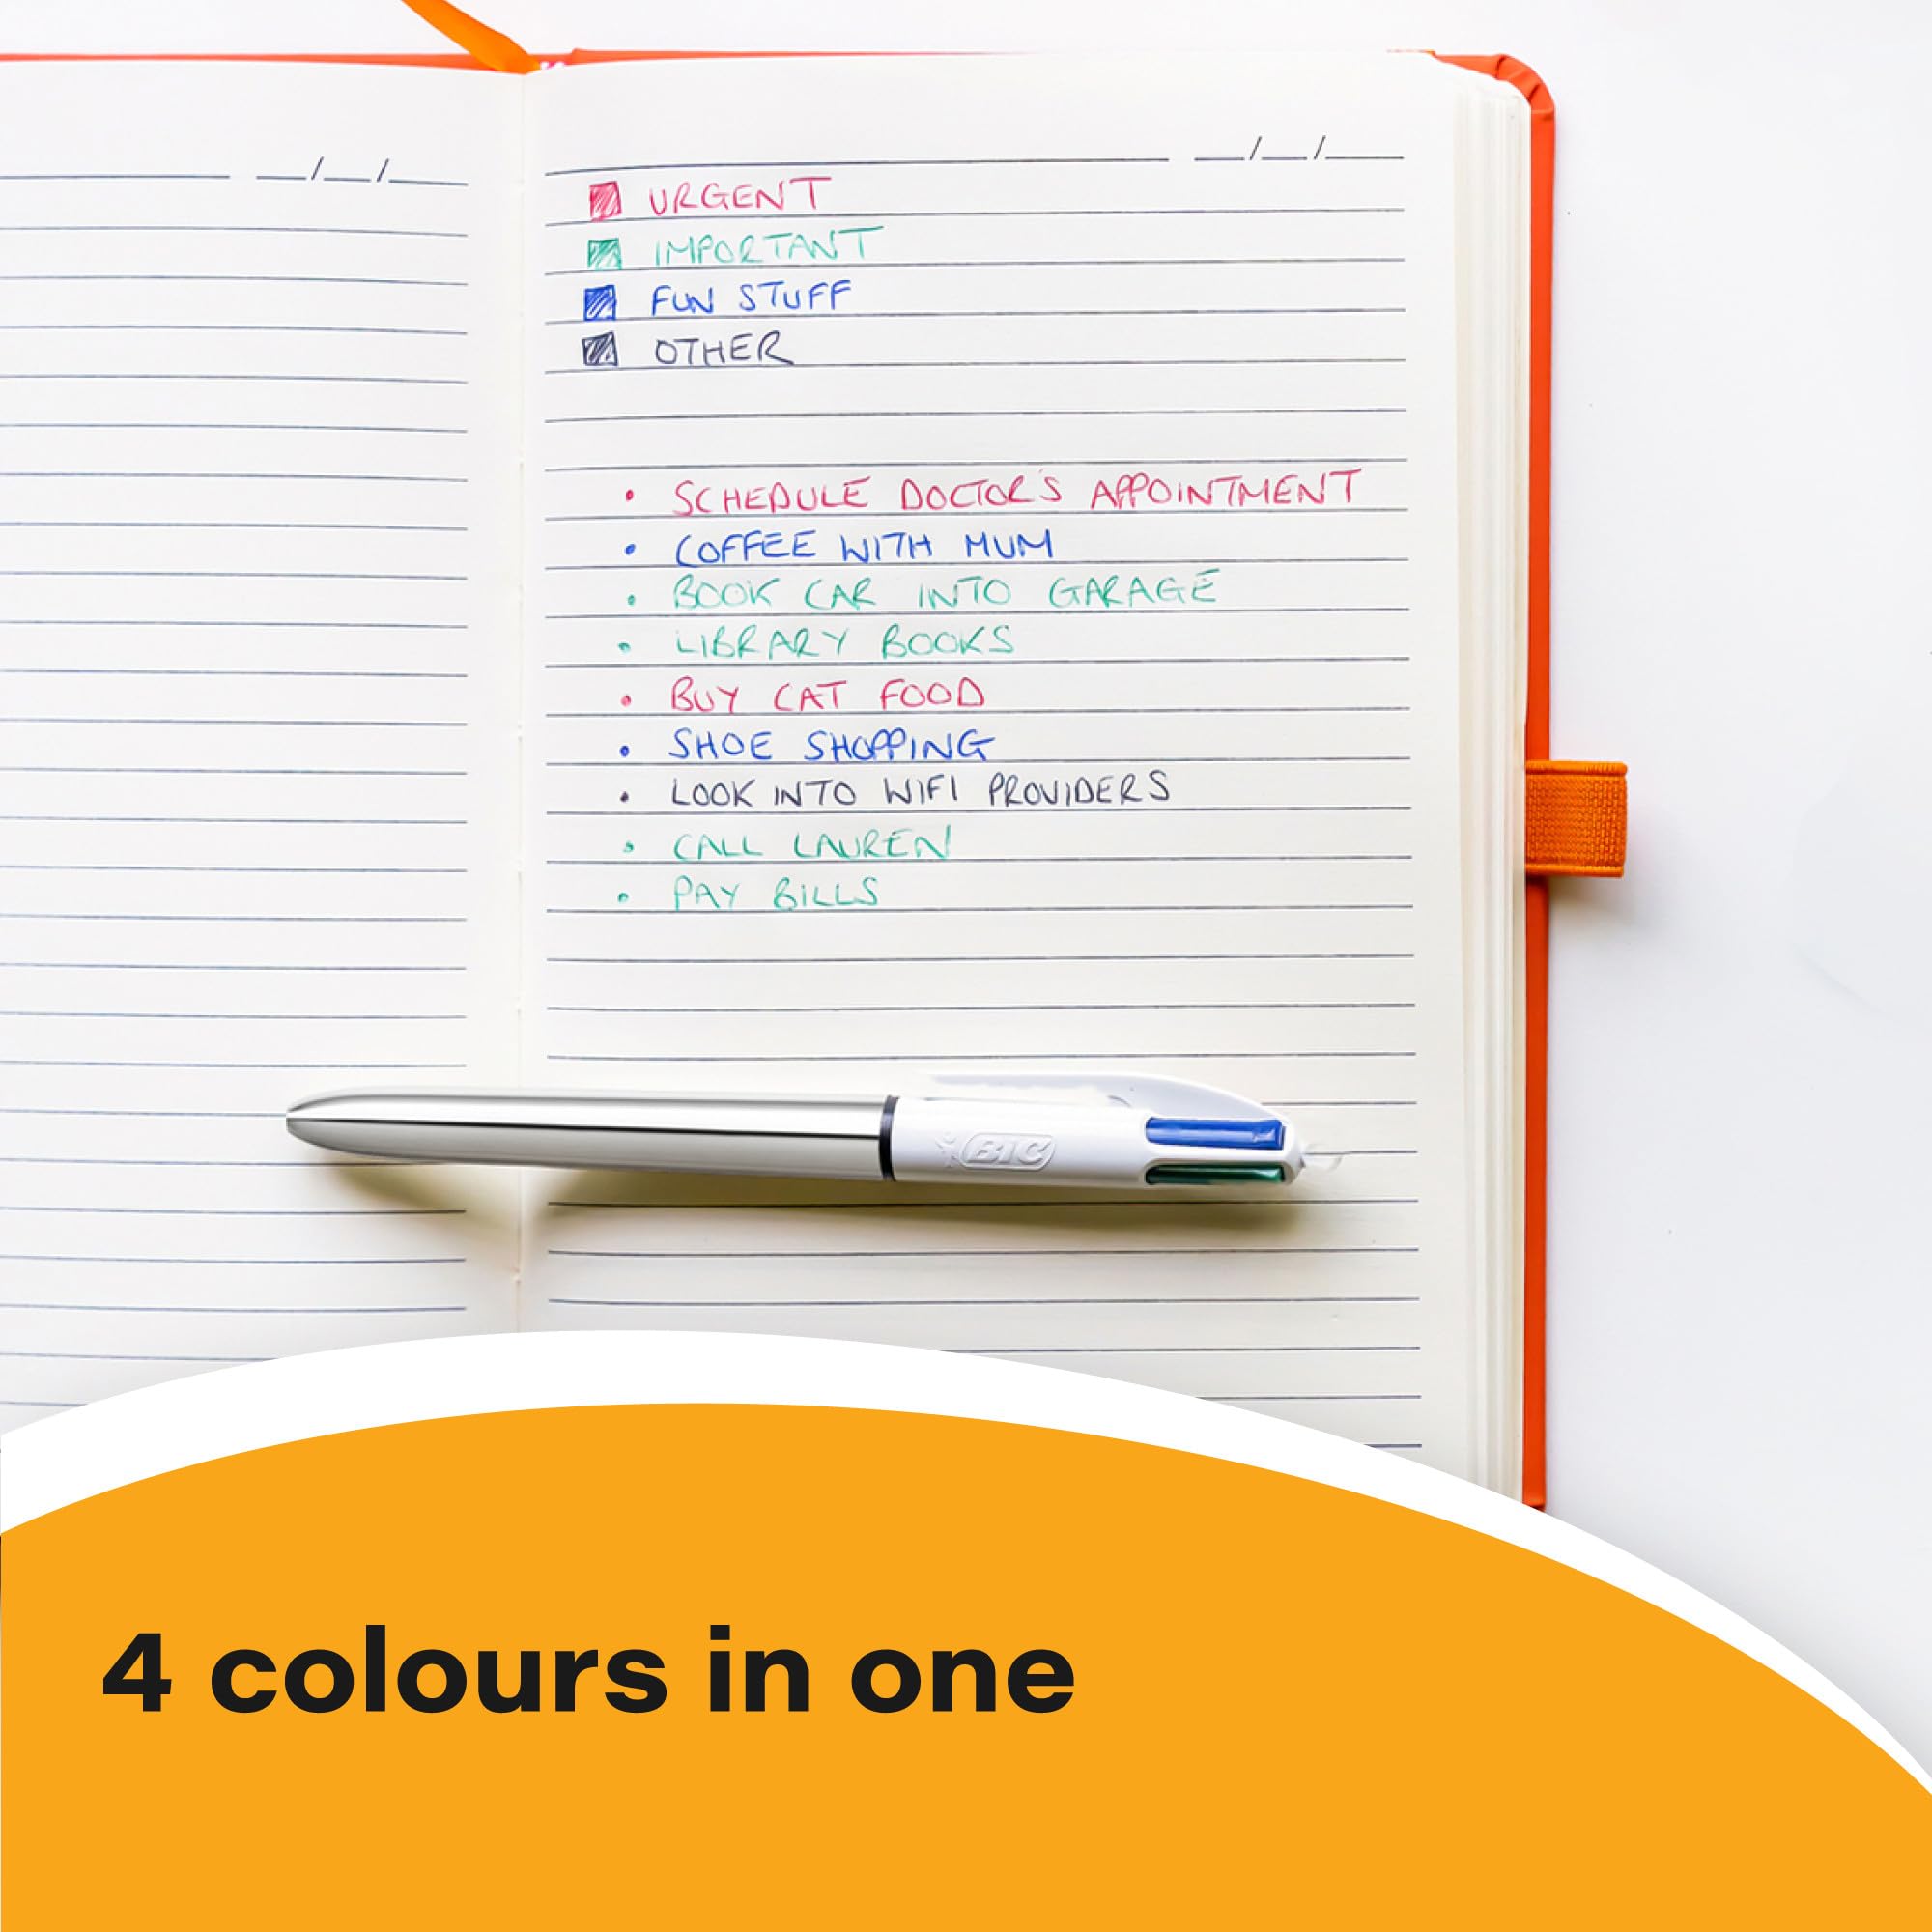 __/__/____
__/__/____
URGENT
IMPORTANT
FUN STUFF
OTHER
• SCHEDULE DOCTOR'S APPOINTMENT
• COFFEE WITH MUM
• BOOK CAR INTO GARAGE
• LIBRARY BOOKS
• BUY CAT FOOD
• SHOE SHOPPING
• LOOK INTO WIFI PROVIDERS
• CALL LAUREN
• PAY BILLS
BIC
4 colours in one